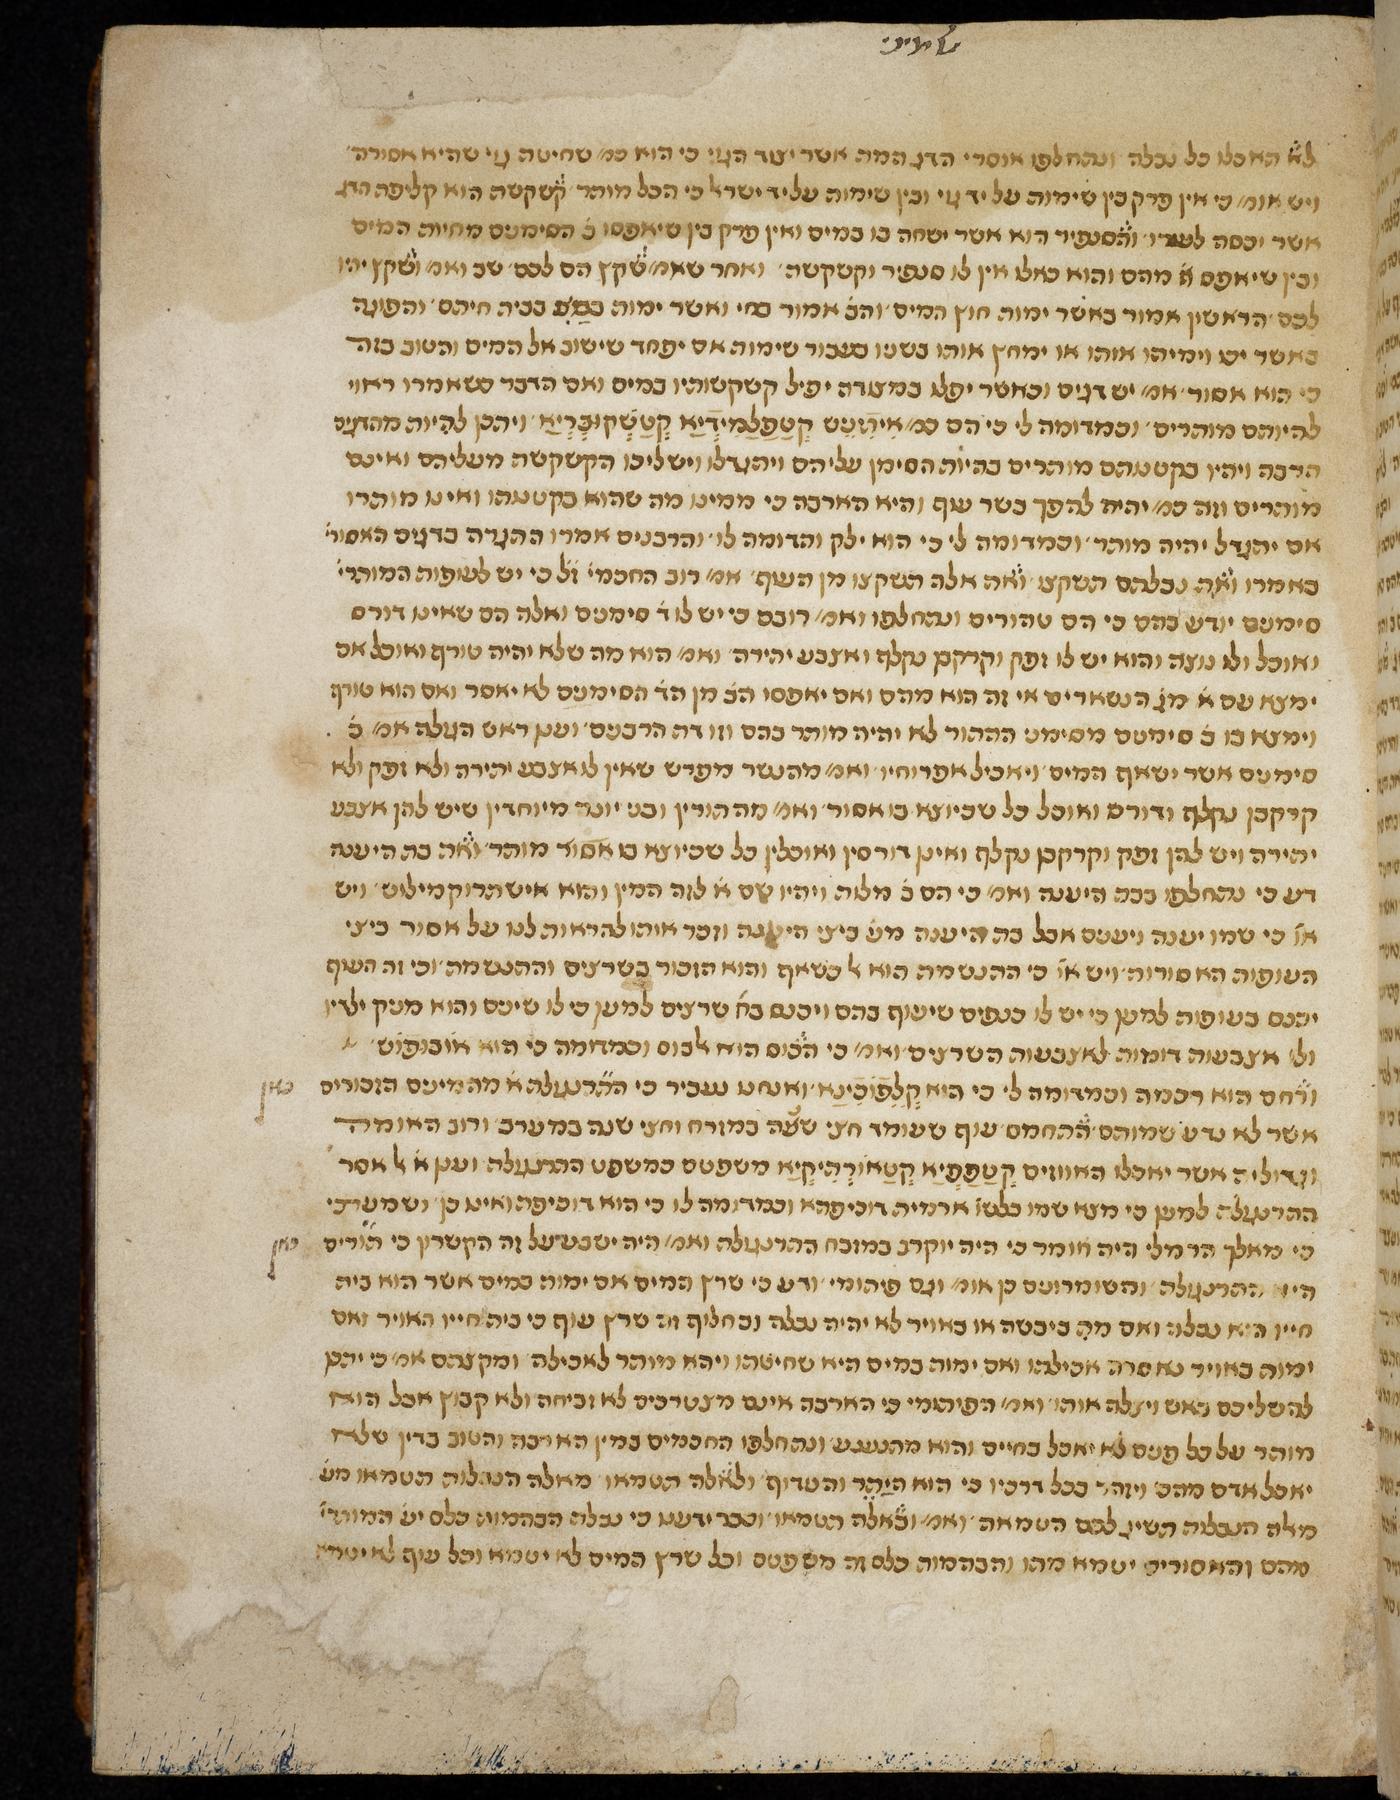 שמיני
לא תאכלו כל נבלה ונתחלפו אוסרי הדג המת אשר יצוד הגוי כי הוא כמ׳ שחיטת גוי שהיא אסורה
ויש אומ׳ כי אין פרק בין שימות על יד גוי ובין שימות על יד ישר׳ כי הכל מותר קשקשת הוא קליפת הדג
אשר יכסה לעורו והסנפיר הוא אשר ישחה בו במים ואין פרק בין שיאפסו ב׳ הסימנים מחיות המים
ובין שיאפס א׳ מהם והוא כאלו אין לו סנפיר וקשקשת ואחר שאמ׳ שקץ הם לכם שב ואמ׳ ושקץ יהיו
לכם הראשון אמור כאשר ימות חוץ המים והב׳ אמור חי ואשר ימות בבית חיתם והכונה
כאשר יש וימיתו אותו או ימחץ אותו בשנו בעבור שימות אם יפחד שישוב אל המים והטוב בזה
כי הוא אסור אמ׳ יש דגים וכאשר יפלו במצודה יפיל קשקשותיו במים ואם הדבר כשאמרו ראוי
להיותם מותרים וכמדומה לי כי הם כמ׳ ויתכן להיות מהדגים
הרבה ויהיו בקטנותם מותרים בהיות הסימן עליהם ויתגדלו וישליכו הקשקשת מעליהם ואינם
מותרים וזה כמ׳ יהיה להפך בשר עוף והיא הארבה כי ממינו מה שהוא בקטנותו ואינו מותרו
אם יתגדל יהיה מותר וכמדומה לי כי הוא ילק והדומה לו והרבנים אמרו ההגדה בדגים האסורי׳
באמרו ואת נבלתם תשקצו ואת אלה תשקצו מן העוף אמ׳ רוב החכמי׳ ז״ל כי יש לעופות המותרי׳
סימנים יודע בהם כי הם טהורים ונתחלפו ואמ׳ רובם כי יש לו ד׳ סימנים ואלה הם שאינו דורס
ואוכל ולו נוצה והוא יש לו זפק וקרקבן נקלף ואצבע יתירה ואמ׳ הוא מה שלא יהיה טורף ואוכל אם
ימצא עם א׳ מן הנשארים אי זה הוא מהם ואם יאפסו הב׳ מן הד׳ הסימנים לא יאסר ואם הוא טורף
וימצא בו ב׳ סימנים מסימני הטהור לא יהיה מותר בהם וזו דת הרבנים וענן ראש הגולה אמ׳ ב׳
סימנים אשר ישאף המים ויאכיל אפרוחיו ואמ׳ מהנשר מפרש שאין לו אצבע יתירה ולא זפק ולא
קרקבן נקלף ודורס ואוכל כל שכיוצא בו אסור ואמ׳ מה תורין ובני יונה מיוחדין שיש להן אצבע
יתירה ויש להן זפק וקרקבן נקלף ואינן דורסין ואוכלין כל שכיוצא בו אסור מותר ואת בת היענה
דע כי נתחלפו בבת היענה ואמ׳ כי הם ב׳ מלות ויהיו שם א׳ לזה המין והוא ויש
או׳ כי שמו יענה ויענים אבל בת היענה מע׳ ביצי היענה וזכר אותו להראות לנו על אסור ביצי
העופות האסורות ויש או׳ כי התנשמת הוא והוא הזכור בשרצים והתנשמת וכי זה העוף
יכנס בעופות למען כי יש לו כנפים שיעוף בהם ויכנס בא׳ שרצים למען כי לו שינים והוא מניק ילדיו
ולו אצבעות דומות לאצבעות השרצים ואמ׳ כי הכוס הוא וכמדומה כי הוא
ורחם הוא רכמה וכמדומה לי כי היא ואנחנו נסביר כי התרנגולת א׳ מהמינים הזכורים
אשר לא נדע שמותם התחמס עוף שעומד חצי שנה במזרח וחצי שנה במערב ורוב האומה
וגדוליה אשר יאכלו האווזים משפטם כמשפט התרנגולת וענן אסר
התרנגולת למען כי מצא שמו בלשון ארמית דוכיפתא וכמדומה לו כי הוא דוכיפת ואינו כן ושמענו כי
כי מאלך הרמלי היה אומר כי היה יוקרב במזבח התרנגולת ואמ׳ היה ישבע על זה הקשרון כי תורים
היא התרנגולת והשומרונים כן אומ׳ וגם פיתומי ודע כי שרץ המים אם ימות במים אשר הוא בית
חייו היא נבלה ואם מת ביבשה או באויר לא יהיה נבלה ובחלוף זה שרץ עוף כי בית חייו האויר ואם
ימות באויר נאסרה אכילתו ואם ימות במים היא שחיטתו ויהא מותר לאכילה ומקצתם אמ׳ כי יתכן
להשליכם באש ויצלה אותו ואמ׳ הפיתומי כי הארבה אינם מצטרכים לא זביחה ולא קבוץ אבל הוא
מותר על כל פנים לא יאכל בחיים והוא מהנוגע ונתחלפו החכמים במין הארבה והטוב בדין שלא
יאכל אדם מהם ויזהר בכל דרכיו כי הוא היקר והעדוף ולאלה תטמאו מאלה הנבלות תטמאו מע׳
מאלה הנבלות תשיג לכם הטמאה ואמ׳ ובאלה תטמאו וכבר ידענו כי נבלת הבהמות כלם יש׳ המותרי׳
מהם והאסורים יטמא מהו והבהמות כלם זה משפטם וכל שרץ המים לא יטמא וכל עוף לא יטמא
כאן
כאן